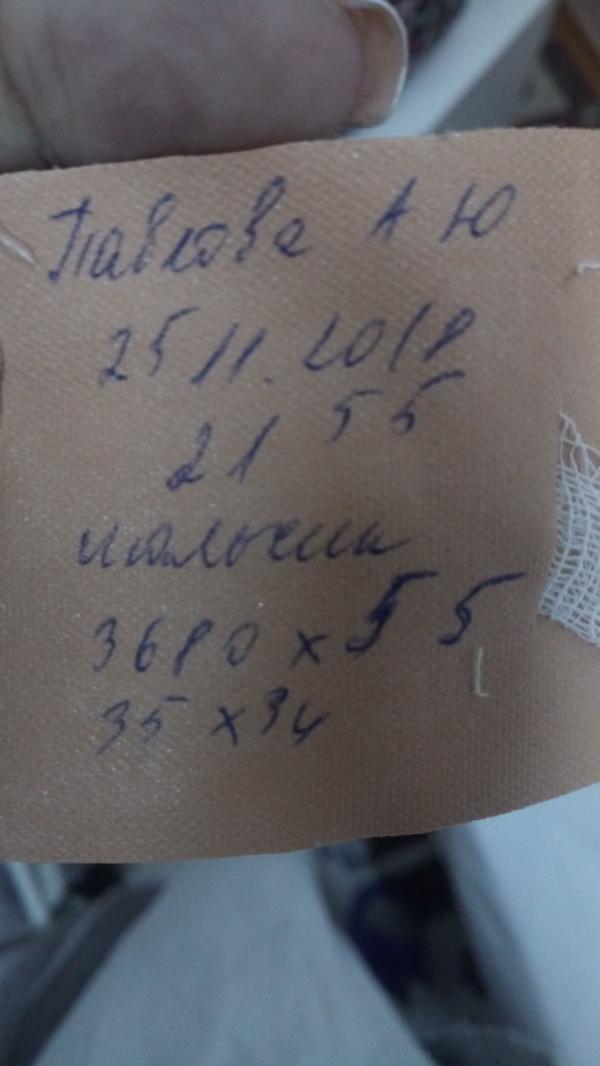 Павлова А Ю
25 11. 2018
21 55
мальчик
3680 x 55
35 x 34